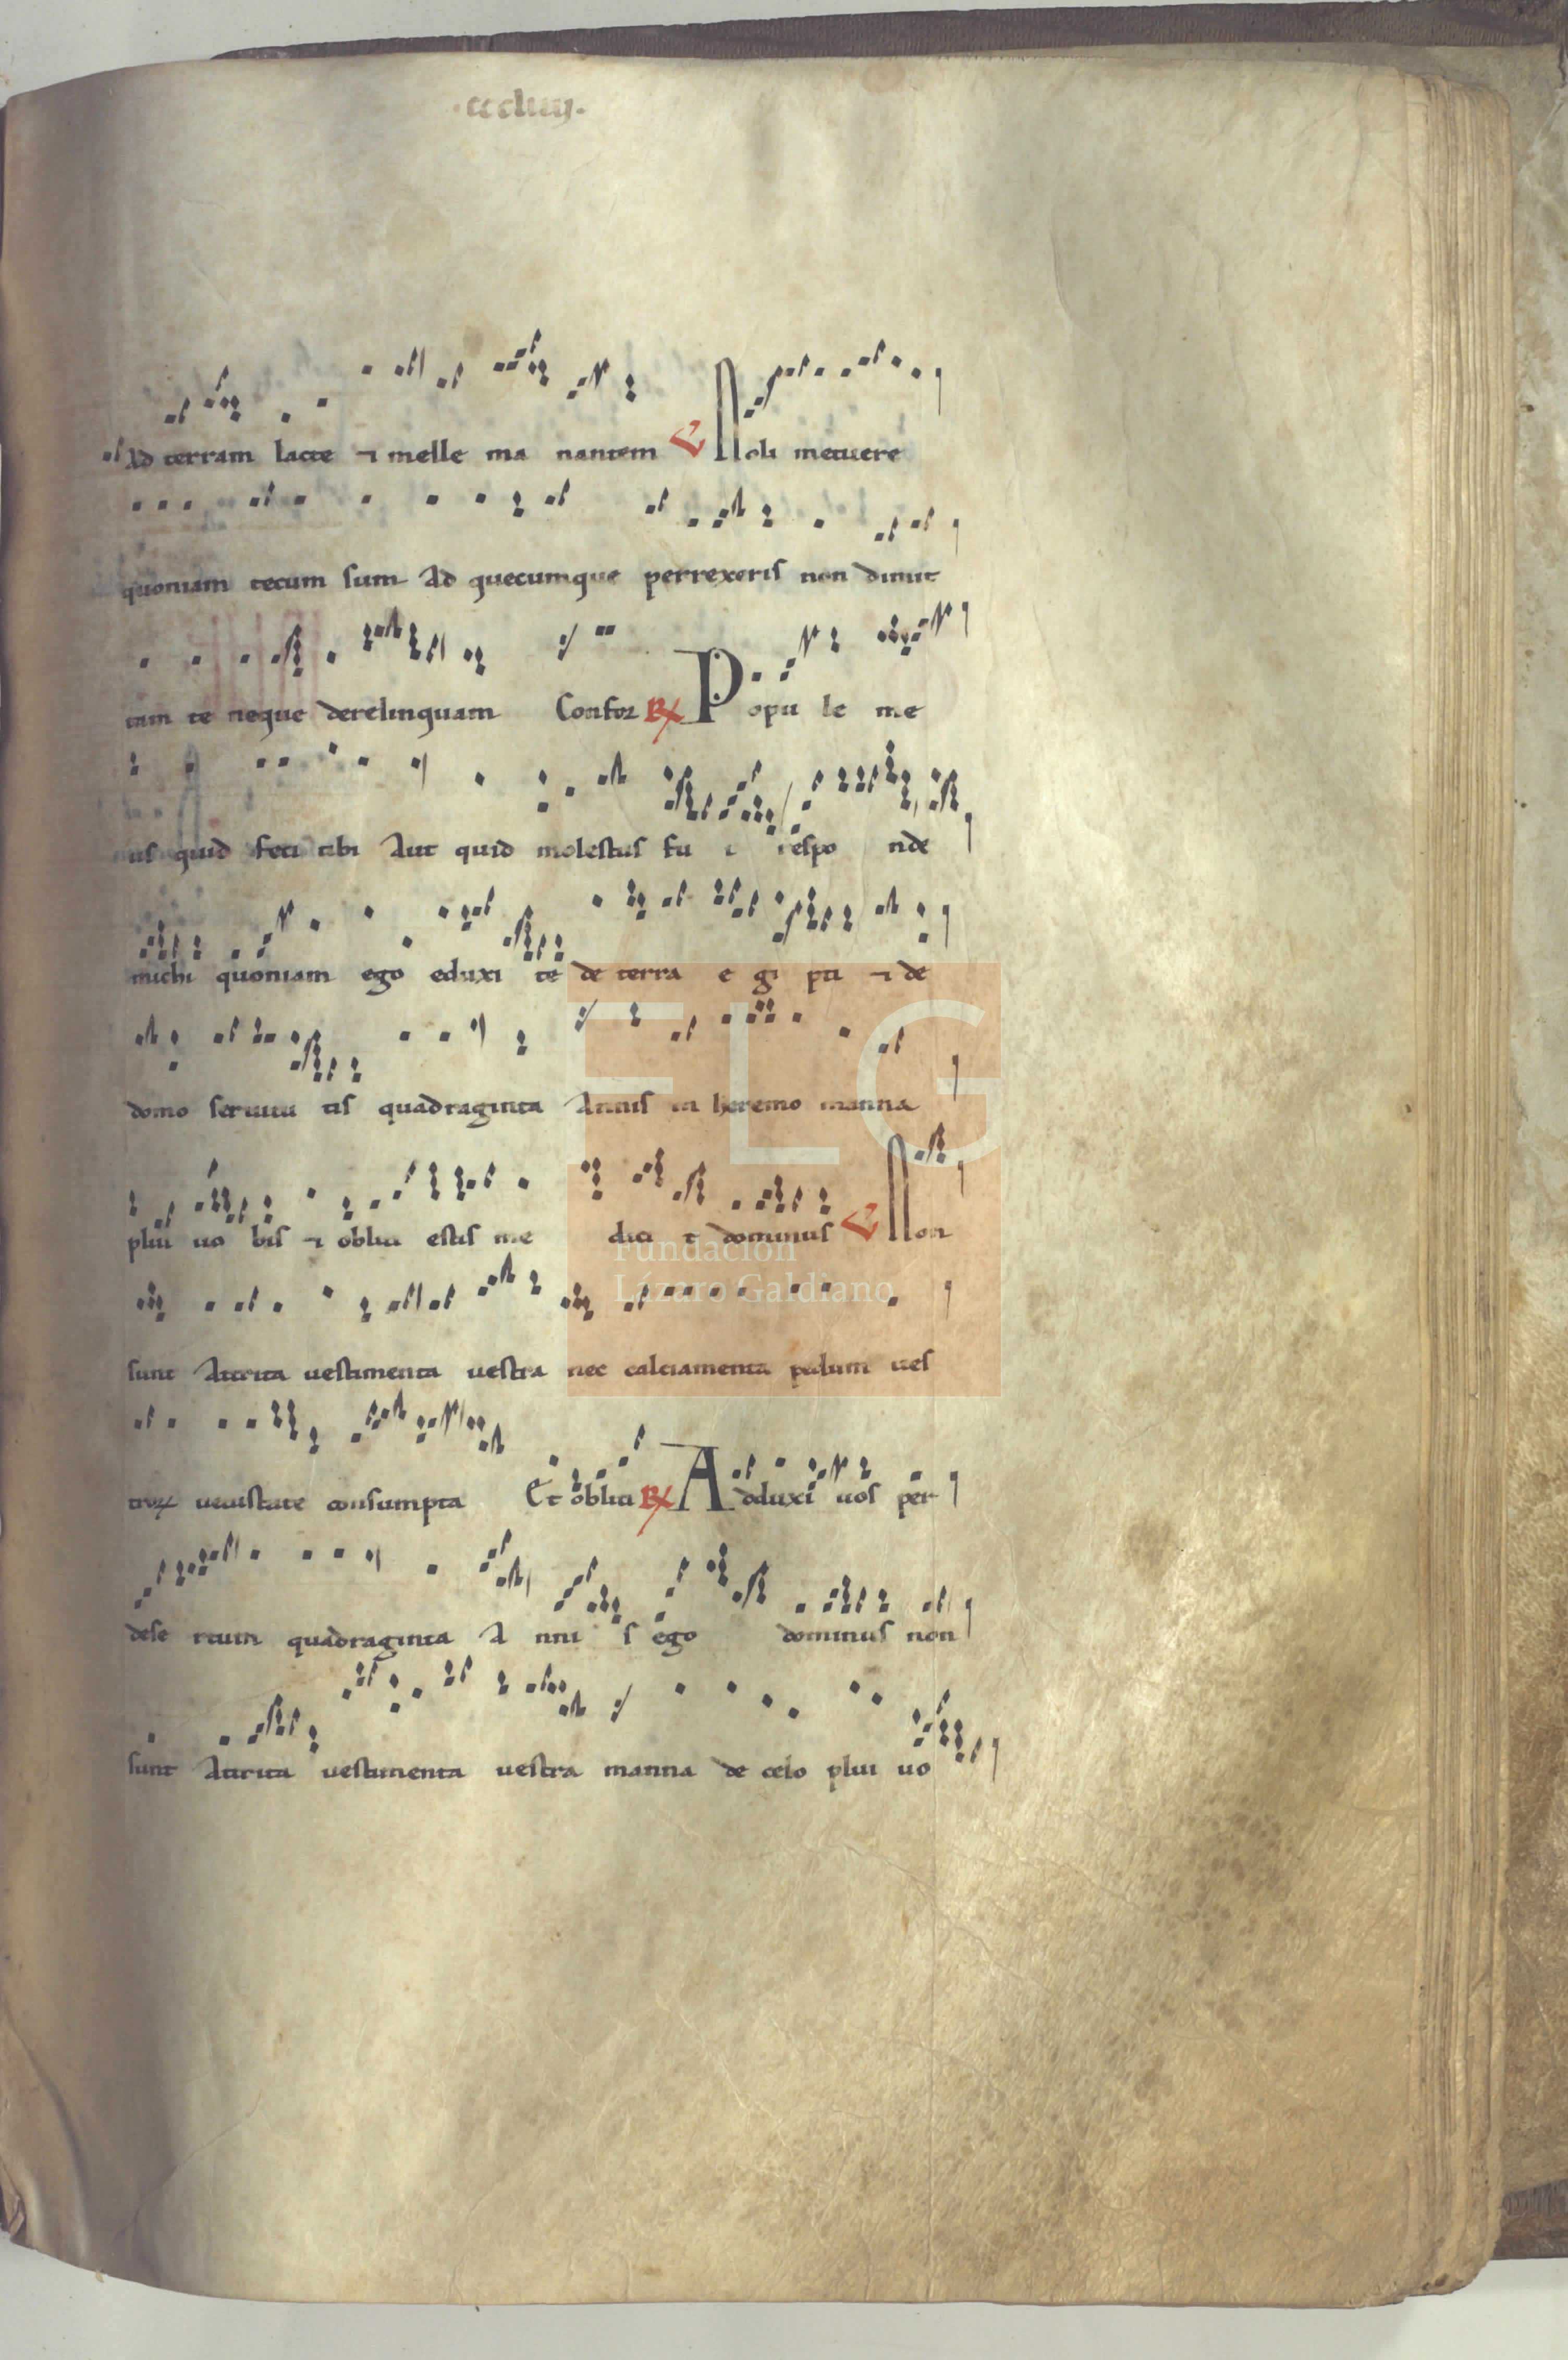 ·cccliiij·
Ad terram lacte ⁊ melle ma nantem ℣ Noli metuere
quoniam tecum sum Ad quecumque perrexeris non dimit
tam te neque derelinquam Confor ℞ Popu le me
us quid feci tibi Aut quid molestus fu i respo nde
michi quoniam ego eduxi te de terra e gi pti ⁊ de
domo seruitu tis quadraginta Annis in heremo manna
plui uo bis ⁊ obliti estis me dici t dominus ℣ Non
sunt Attrita uestimenta uestra nec calciamenta pedum ues
troꝝ uetustate consumpta Et obliti ℞ Adduxi uos per
dese rtum quadraginta A nni s ego dominus non
sunt Attrita uestimenta uestra manna de celo plui uo
FLG
Fundación
Lázaro Galdiano